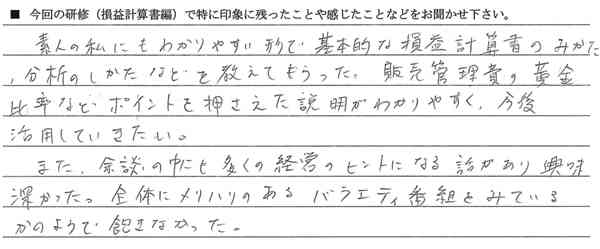 ■ 今回の研修（損益計算書編）で特に印象に残ったことや感じたことなどをお聞かせ下さい。
素人の私にもわかりやすい形で基本的な損益計算書のみかた
、分析のしかたなどを教えてもらった。販売管理費の黄金
比率などポイントを押さえた説明がわかりやすく、今後
活用していきたい。
また、余談の中にも多くの経営のヒントになる話があり興味
深かった。全体にメリハリのあるバラエティ番組をみている
かのようで飽きなかった。